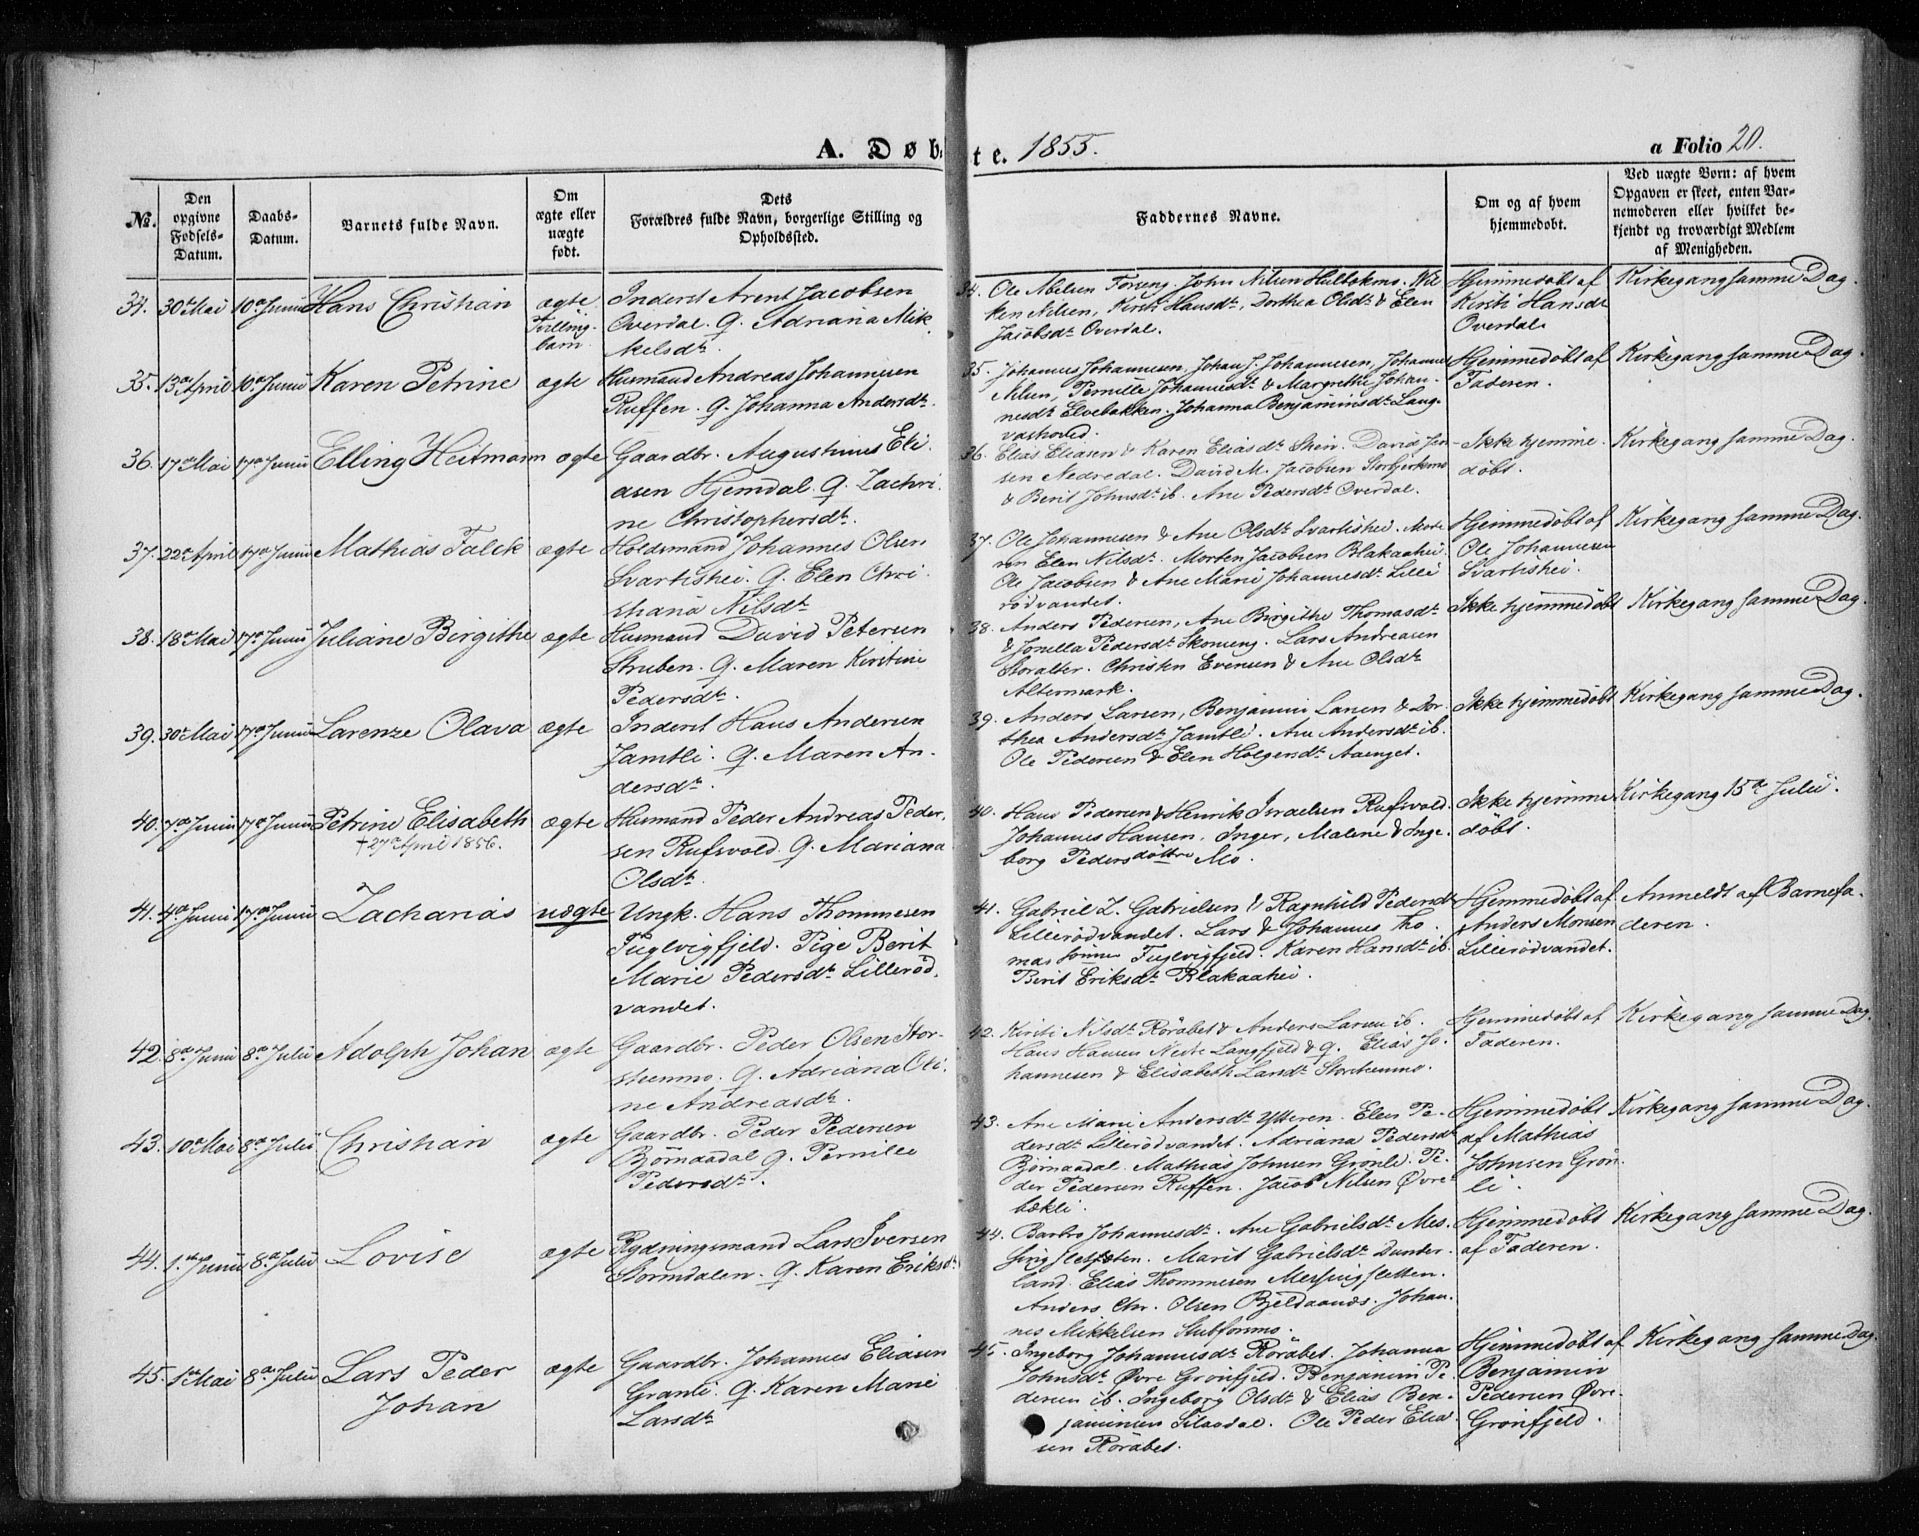 A. Døbte. 1855.
a Folio 20.
No.
Den opgivne Fødsels-Datum.
Daabs-Datum.
Barnets fulde Navn.
Om ægte eller uægte født.
Dets Forældres fulde Navn, borgerlige Stilling og Opholdssted.
Faddernes Navne.
Om og af hvem hjemmedøbt.
Ved uægte Børn: af hvem Opgaven er skeet, enten Barnemoderen eller hvilket bekjendt og troværdigt Medlem af Menigheden.
34. 30te Mai 10de Junii Hans Christian ægte Tvillingbarn
Inderst Arent Jacobsen
Overdal. Q. Adriana Mik
kelsdt.
34. Ole Nielsen Forseng. John Nilsen
ken Nilsen, Kirsti Hansdt, Dorthea Olsdt & Elen
Jacobsdt Overdal.
Hjemmedøbt af
Kirsti Hansdt
Overdal.
Kirkegang samme Dag.
35. 13de April 10de Junii Karen Petrine ægte
Husmand Andreas Johannesen
Ruffen. Q. Johanna Andersdt.
35. Johannes Johannesen, Johan J. Johannesen, Johannes
Nilsen, Pernille Johannesdt & Margrethe Johan-
nesdt Elvebakken. Johanna Benjaminsdt Lang-
vashoved.
Hjemmedøbt af
Faderen.
Kirkegang samme Dag.
36. 17de Mai 17de Junii Elling Heitmann ægte
Gaardbr. Augustinus Eli-
asen Hjemdal. Q. Zachri-
ne Christophersdt.
36. Elias Eliasen & Karen Eliasdt David Jen-
sen Nedredal. David M. Jacobsen
& Berit Johnsdt ib. Ane Pedersdt Overdal.
Ikke hjemme-
døbt.
Kirkegang samme Dag.
37. 22de April 17de Junii Mathias Falck ægte
Holdsmand Johannes Olsen
Svartishei. Q. Elen Chri-
stiana Nilsdt
37. Ole Johannesen & Ane Olsdt Svartishei.
Elen Nilsdt. Morten Jacobsen Blakaahei.
Ole Jacobsen & Ane Marie Johannesdt Lille
rödvandet.
Hjemmedøbt af
Ole Johannesen
Svartishei.
Kirkegang samme Dag.
38. 18de Mai 17de Junii Juliane Birgithe ægte
Husmand David Petersen
Struben. Q. Maren Kirstine
Pedersdt.
38. Anders Pedersen, Ane Birgithe Thomasdt
& Jonella Pedersdt Skonseng. Lars Andreasen
Storalter. Christen Evensen & Ane Olsdt
Altermark.
Ikke hjemmedøbt
Kirkegang samme Dag.
39. 30te Mai 17de Junii Larenze Olava ægte
Inderst Hans Andersen
Jamtli. Q. Maren An-
dersdt.
39. Anders Larsen, Benjamin Larsen & Dor-
thea Andersdt Jamtli. Ane Andersdt ib.
Ole Pedersen & Elen Holgersdt Aaenget.
Ikke hjemmedøbt
Kirkegang samme Dag.
40. 7de Junii 17de Junii Petrine Elisabeth ægte
† 27de April 1856.
Husmand Peder Andreas Peder-
sen Rufsvold. Q. Mariana
Olsdt.
40. Hans Pedersen & Henrik Israelsen Rufsvold.
Johannes Hansen, Inger, Malene & Inge-
borg Pedersdøttre Mo.
Ikke hjemme
døbt.
Kirkegang 15de Julii.
41. 4de Junii 17de Junii Zacharias uægte
Ungk. Hans Thommesen
Fuglvigfjeld. Pige Berit
Marie Pedersdt Lilleröd-
vandet.
41. Gabriel Z. Gabrielsen & Ragnhild Pedersdt
Lillerödvandet. Lars & Johannes Tho-
mas Sønner Fuglvigfjeld. Karen Hansdt ib.
Berit Eriksdt Blakaahei.
Hjemmedøbt af
Anders Monsen
Lillerödvandet.
Anmeldt af Barnefa-
deren.
42. 8de Junii 8de Julii Adolph Johan ægte
Gaardbr. Peder Olsen Stor-
stenmo. Q. Adriana Oli-
ne Andreasdt.
42. Kirsti Nilsdt Röråbet & Anders Larsen ib.
Hans Hansen Nedre Langfjeld & Q. Elias Jo-
hannesen & Elisabeth Larsdt Storstenmo.
Hjemmedøbt af
Faderen.
Kirkegang samme Dag.
43. 10de Mai 8de Julii Christian ægte
Gaardbr. Peder Pedersen
Björnaadal Q. Pernille
Pedersdt.
43. Ane Marie Andersdt Ytteren. Elen Pe-
dersdt Lillerödvandet. Adriana Pedersdt
Björnaadal. Mathias Johnsen Grönli. Pe-
der Pedersen Ruffen. Jacob Nilsen Øvre-
bækli.
Hjemmedøbt
af Mathias
Johnsen Grön-
li.
Kirkegang samme Dag.
44. 1ste Junii 8de Julii Lovise ægte
Rydningsmand Lars Iversen
Stormdalen. Q. Karen Eriksdt
44. Barbro Johannesdt. Ane Gabrielsdt Mes-
singsletten. Marit Gabrielsdt Dunder-
land. Elias Thommesen Messingsletten.
Anders Chr. Olsen Bjeldaanæs. Johan-
nes Mikkelsen Stubformo.
Hjemmedøbt
af Faderen.
Kirkegang samme Dag.
45. 1ste Mai 8de Julii Lars Peder
Johan
ægte
Gaardbr. Johannes Eliasen
Granli. Q. Karen Marie
Larsdt
45. Ingeborg Johannesdt Röråbet. Johanna
Johnsdt Øvre Grönfjeld. Benjamin Pe-
dersen ib. Ingeborg Olsdt & Elias Ben-
jaminsen Silaadal. Ole Peder Elia-
sen Röråbet.
Hjemmedøbt af
Benjamin
Pedersen Øvre
Grönfjeld.
Kirkegang samme Dag.